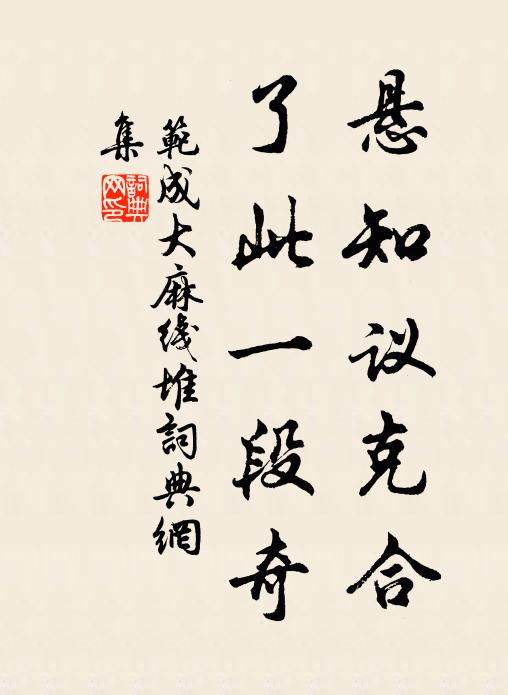 悬知议克合
了此一段奇
範成大麻线堆詞典網
集
詞典
网印